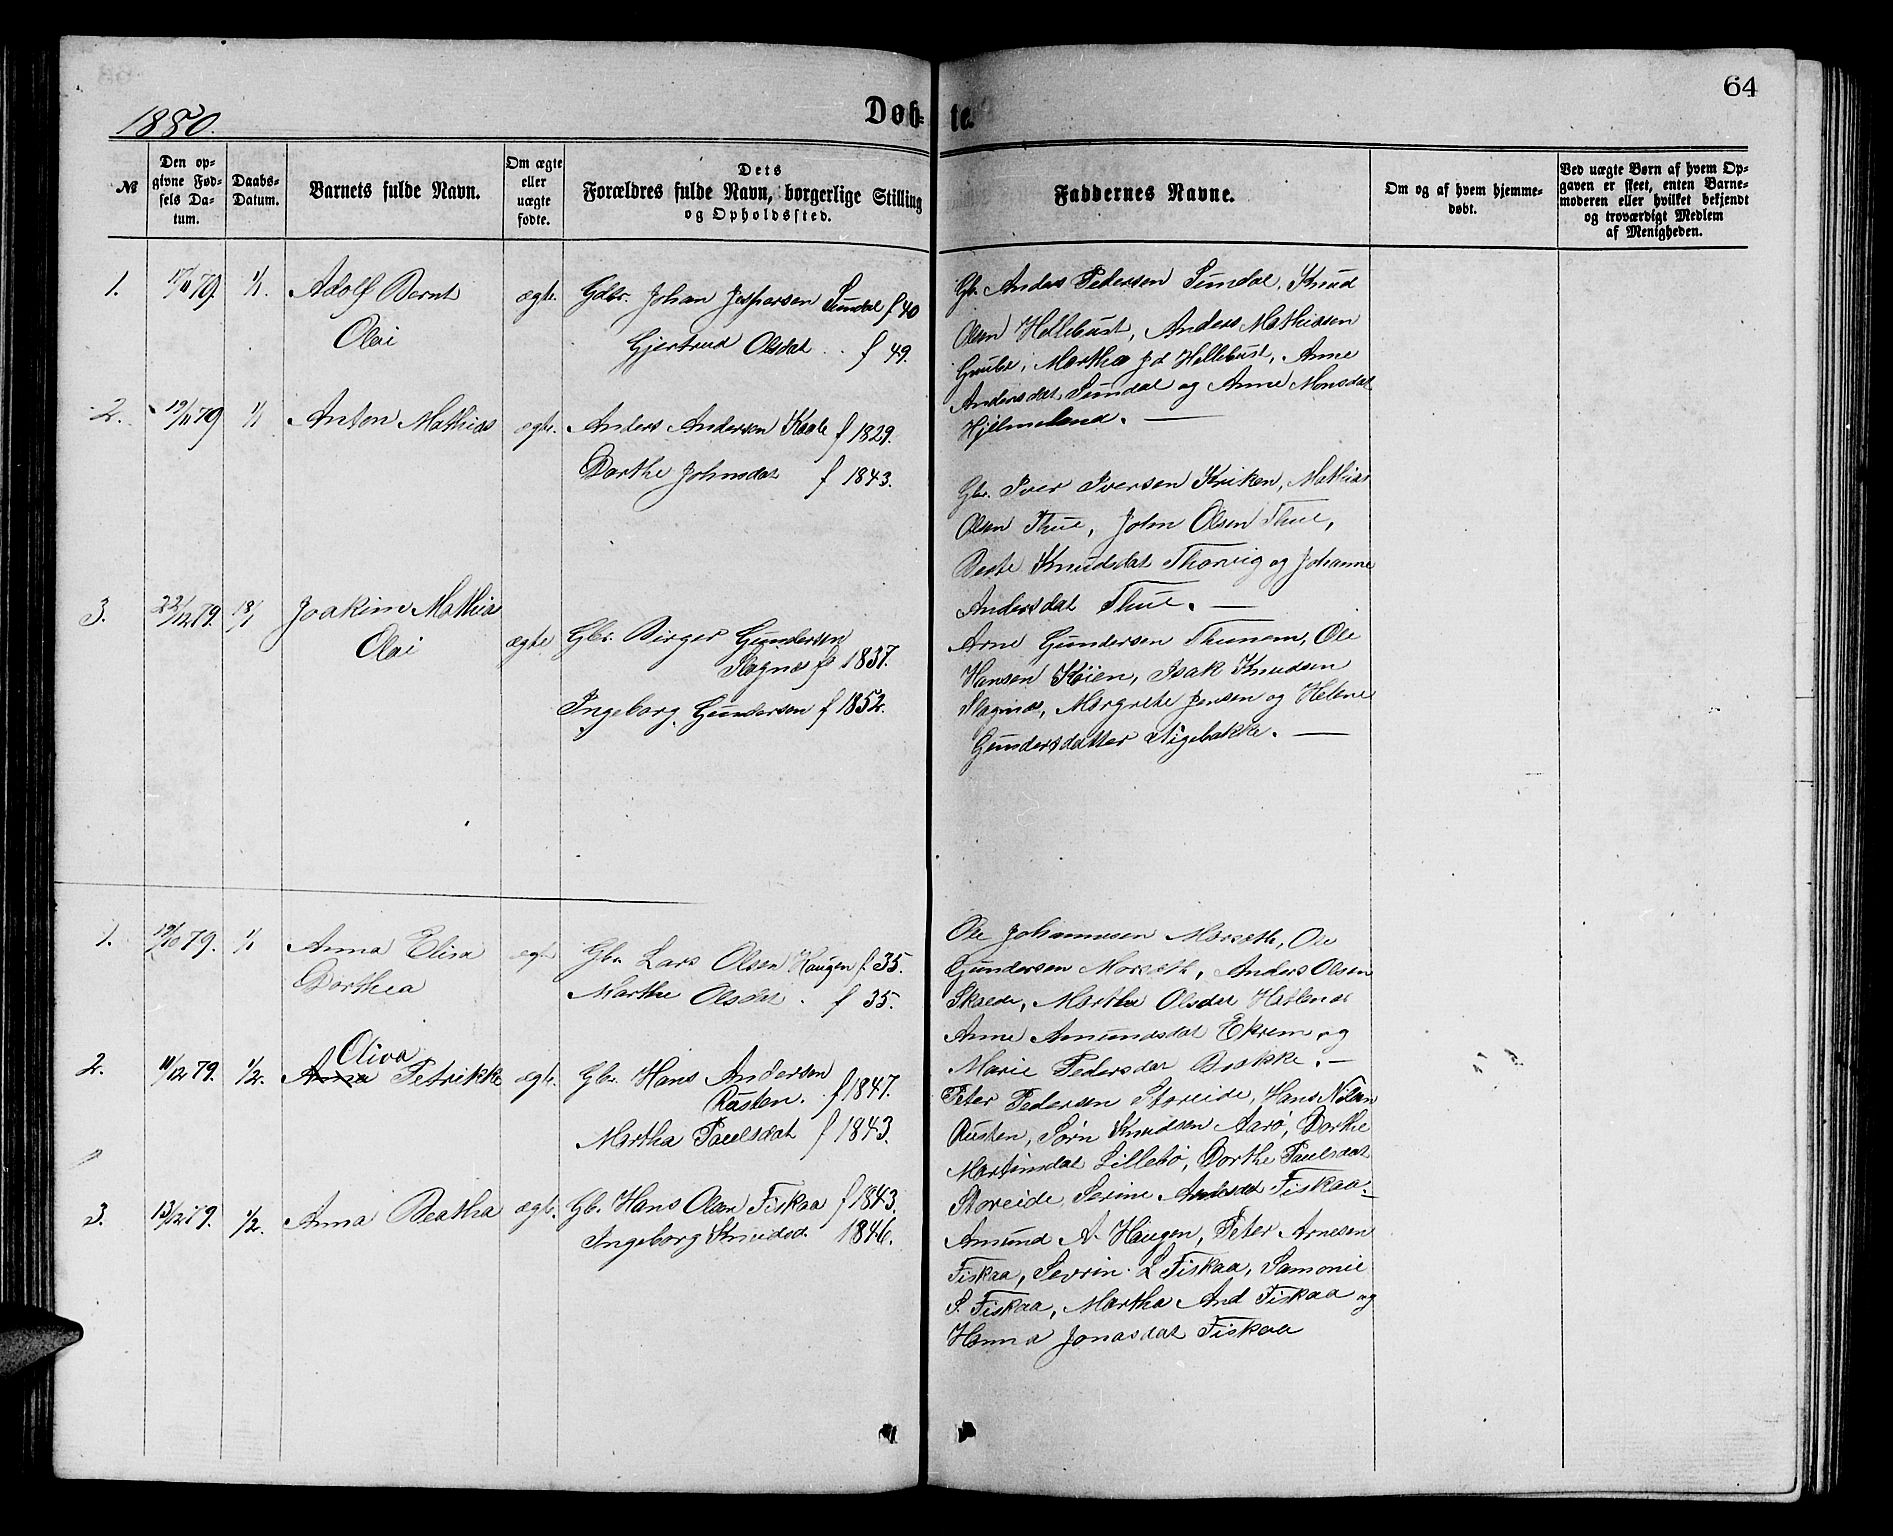 64
1880.
Døb- te.
№
Den opgivne Fødsels Datum.
Daabs-Datum.
Barnets fulde Navn.
Om ægte eller uægte fødte.
Dets Forældres fulde Navn, borgerlige Stilling og Opholdssted.
Faddernes Navne.
Om og af hvem hjemmedøbt.
Ved uægte Børn af hvem Opgaven er skeet, enten Barnemoderen eller hvilket bekjendt og troværdigt Medlem af Menigheden.
1. 17/11 79. 1/1. Adolf Bernt ægte. Gdbr. Johan Jetharsen Sundal f 40
Olai Gjertrud Olsdat . . f 49.
Gb. Anders Pedersen Sundal, Knud
Olsen Hellebust, Anders Mathiasen
Grubs, Martha Jd Hellebust, Anne
Andersdat Sundal og Anne Monsdat
Hjelmeland. —
2. 19/11 79 1/1 Anton Mathias ægte. Anders Andersen Kaale f 1829.
Dorthe Johnsdat f 1843.
Gbr. Iver Iversen Kriken, Mathias
Olsen Thue, John Olsen Thue,
Beate Knudsdat Thorvig og Johanne
Andersdat Thue. —
3. 22/12 79. 18/1 Joakim Mathias
Olai ægte Gbr. Birger Gundersen
Slagnæs f 1837.
Ingeborg Gundersen f 1852.
Arne Gundersen Thunem, Ole
Hansen Køien, Isak Knudsen
Slagnæs, Margrete Jensen og Helene
Gundersdatter Aigebakke. —
1. 19/10 79. 1/1 Anna Elisa ægte Gbr Lars Olsen Haugen f. 35.
Dorthea Marthe Olsdat . f 35.
Ole Johannesen Morseth, Ole
Gundersen Morseth, Anders Olsen
Skaede, Marthe Olsdat Hatlenæs
Anne Amundsdat Ekrem og
Marie Pedersdat Brekke. —
Oliva
2. 11/12 79. 1/2. Anna Petrikke ægte. Gbr. Hans Andersen
Rusten. f 1847.
Martha Paulsdat f 1843.
Peter Pedersen Storeide, Hans Nilsen
Rusten, Sørn Knudsen Aarø, Dorthe
Martinsdat Lillebø, Dorthe Paulsdat
Storeide, Serine Andersdat Fiskaa.—
3. 13/12 79. 1/2. Anna Beatha ægte. Gb. Hans Olsen Fiskaa f 1843.
Ingeborg Knudsd. 1846.
Amund A. Haugen, Peter Arnesen
Fiskaa, Sevrin L Fiskaa, Samonie
S. Fiskaa, Martha And Fiskaa og
Hanna Jonasdat Fiskaa